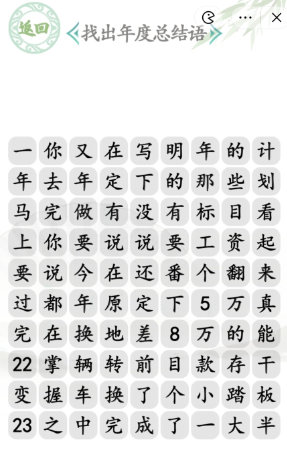 返回
找出年度总结语
一你又在写明年的计
年去年定下的那些划
马完做有没有标目看
上你要说说要工资起
要说今在还番个翻来
过都年原定下5万真
完在换地差8万的能
22掌辆转前目款存干
变握车换了个小踏板
23之中完成了一大半